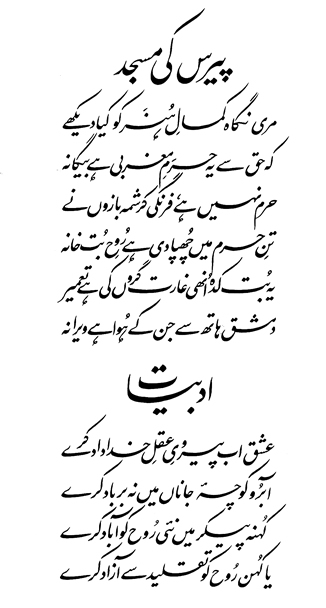 پیرس کی مسجد
مری نگاہ کمالِ ہُنَر کو کیا دیکھے
کہ حق سے یہ حرمِ مغربی ہے بیگانہ
حرم نہیں ہے فرنگی کرشمہ بازوں نے
تنِ حرم میں چھپا دی ہے رُوحِ بُت خانہ
یہ بُت کدہ اُنھی غارت گروں کی ہے تعمیر
دمشق ہاتھ سے جن کے ہُوا ہے ویرانہ
ادبیات
عشق اب پیرویِ عقلِ خداداد کرے
آبرُو کوچۂ جاناں میں نہ برباد کرے
کُہنہ پیکر میں نئی رُوح کو آباد کرے
یا کُہن رُوح کو تقلید سے آزاد کرے